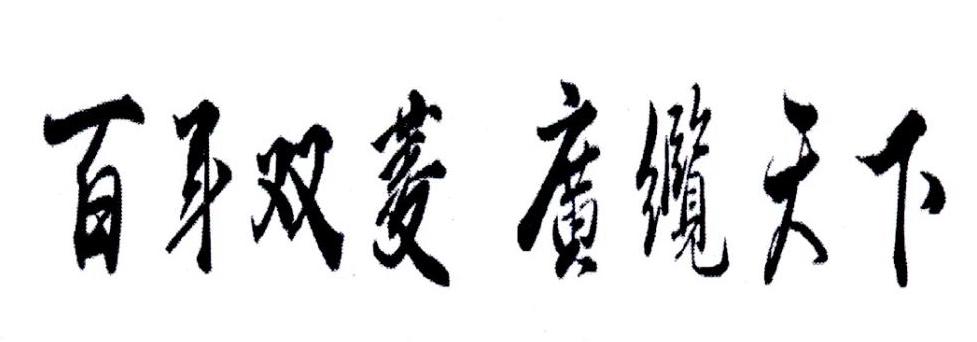 百年双菱 廣纜天下